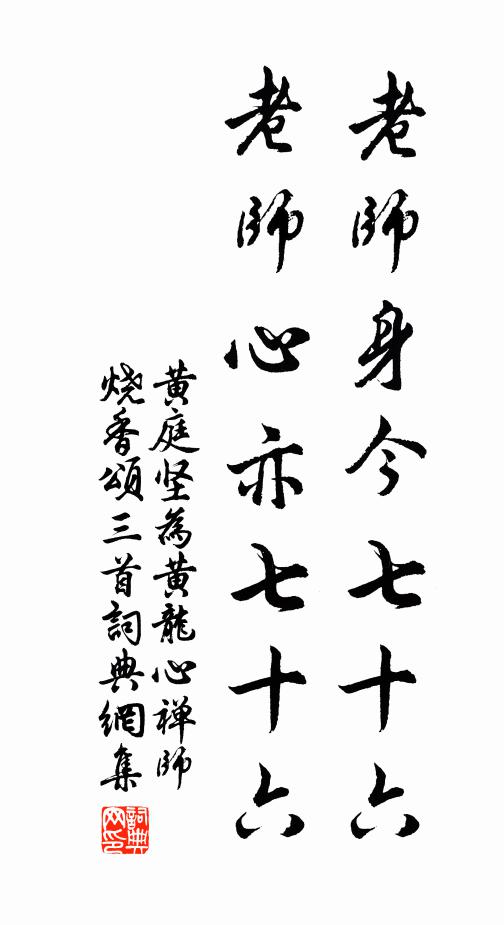 老師身今七十六
老師心亦七十六
黄庭坚為黄龍心禅師
烧香頌三首詞典網集
詞典
网印